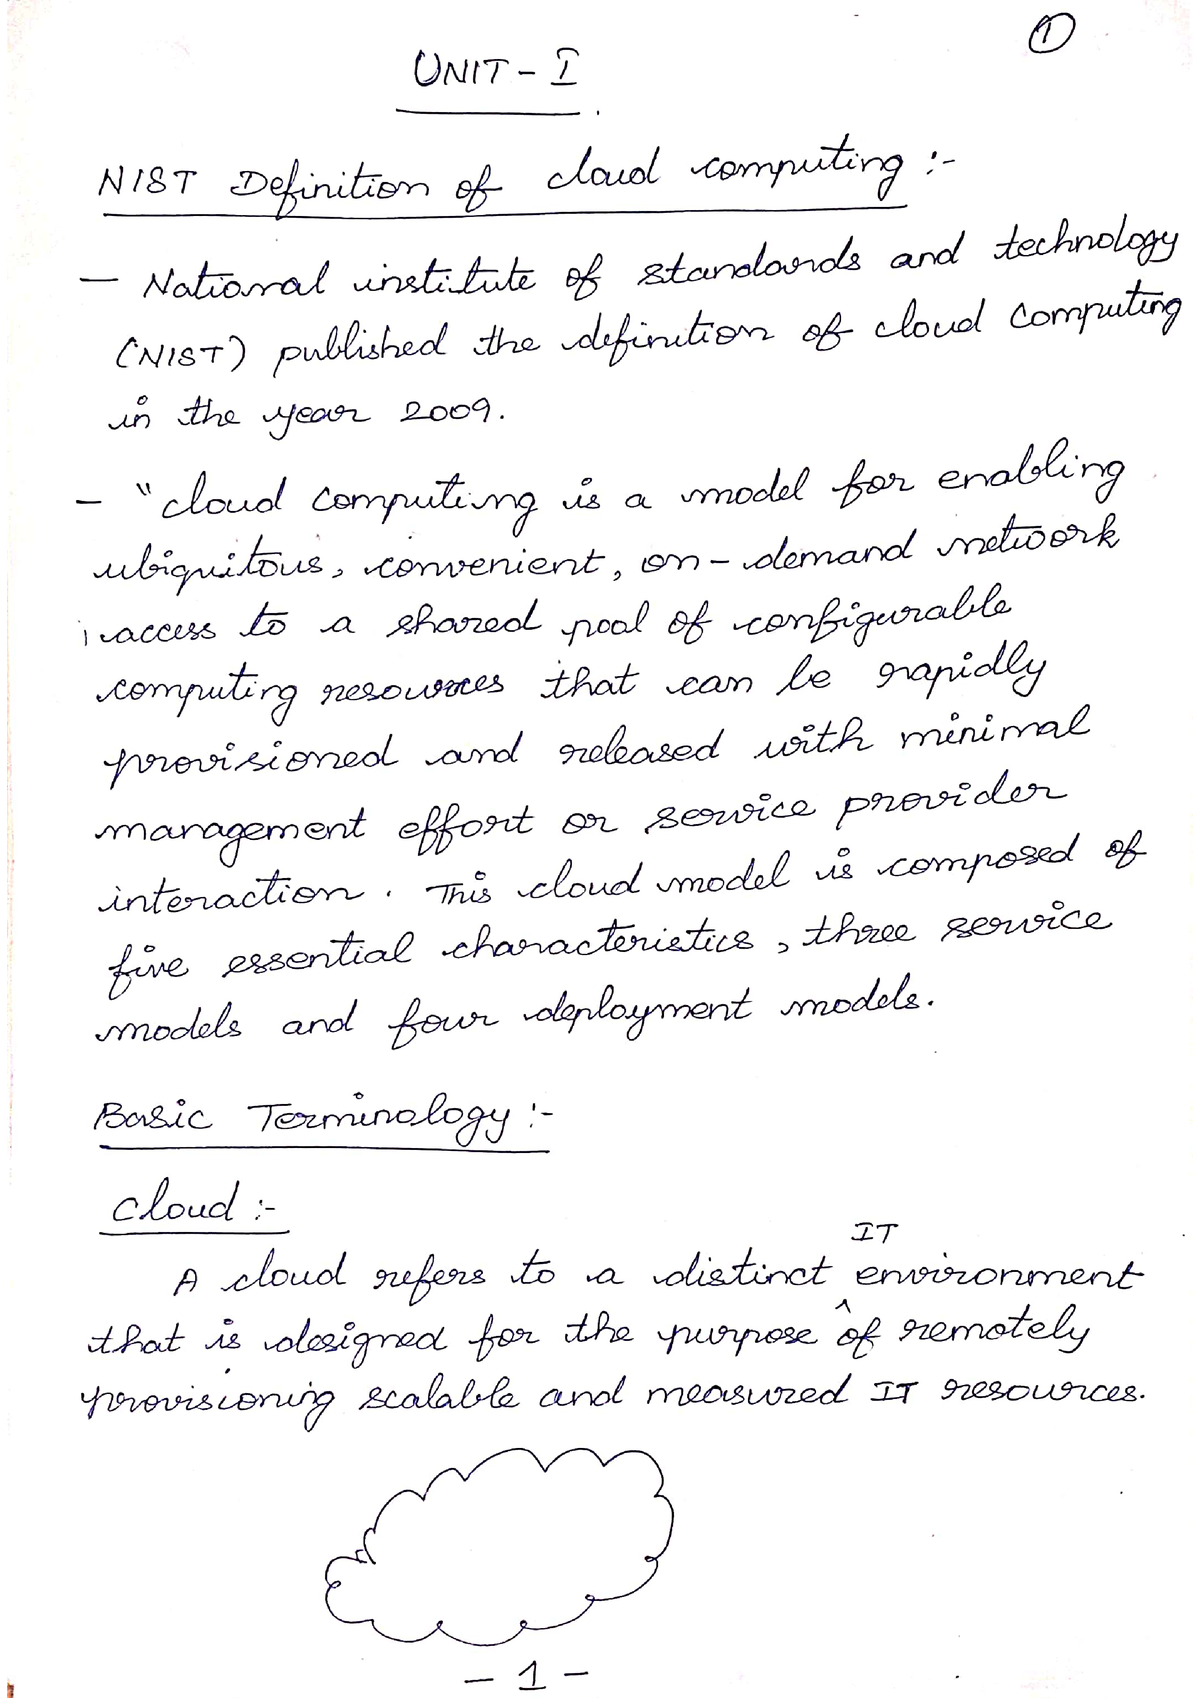 1
UNIT - I
NIST Definition of cloud computing :-
— National institute of standards and technology
(NIST) published the definition of cloud computing
in the year 2009.
— "cloud computing is a model for enabling
ubiquitous, convenient, on-demand network
access to a shared pool of configurable
computing resources that can be rapidly
provisioned and released with minimal
management effort or service provider
interaction. This cloud model is composed of
five essential characteristics, three service
models and four deployment models.
Basic Terminology :-
Cloud :-
IT
A cloud refers to a distinct environment
that is designed for the purpose of remotely
provisioning scalable and measured IT resources.
- 1 -